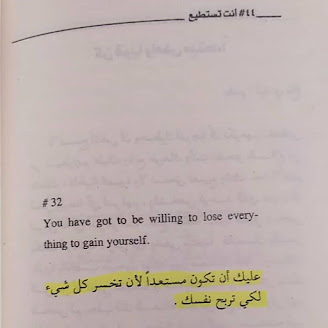 #٤٤ أنت تستطيع
# 32
You have got to be willing to lose every-
thing to gain yourself.
عليك أن تكون مستعداً لأن تخسر كل شيء
لكي تربح نفسك .